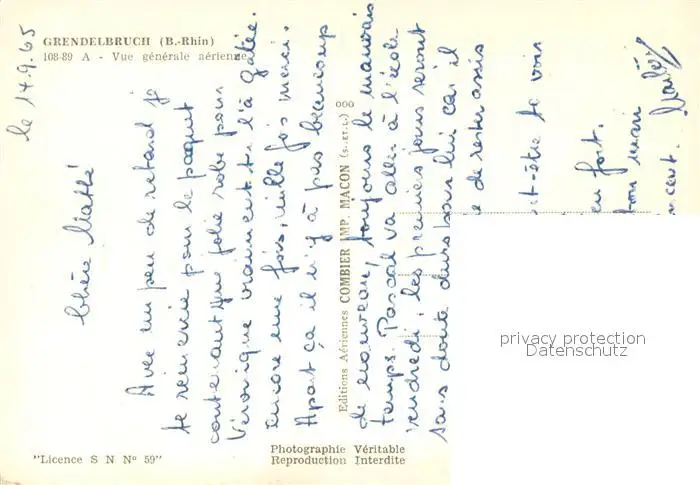 GRENDELBRUCH (B.-Rhin)
108-89 A - Vue générale aérienne
le 14.9.65
Chère
Avec un peu de retard je
te remercie pour le paquet
contenant une jolie robe pour
Véronique vraiment tu l'à gâtée.
Encore une fois, mille fois merci.
Apart ça il n'y à pas beaucoup
de nouveau, toujours le mauvais
temps. Pascal va aller à l'école
vendredi, les premiers jours seront
sans doute durs pour lui car il
de rester assis
-être te voir
fort.
ton mari
Editions Aériennes COMBIER IMP. MACON (S.-ET-L.)
"Licence S N N° 59"
Photographie Véritable
Reproduction Interdite
privacy protection
Datenschutz